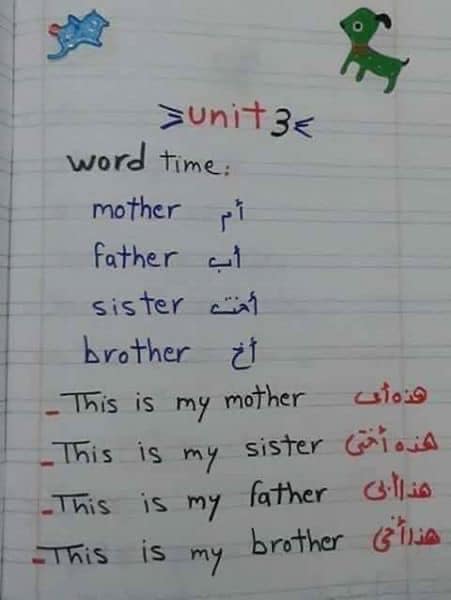 unit 3
word time:
mother أم
father أب
sister أخت
brother أخ
- This is my mother هذه أمى
- This is my sister هذه أختى
- This is my father هذا أبى
- This is my brother هذا أخى